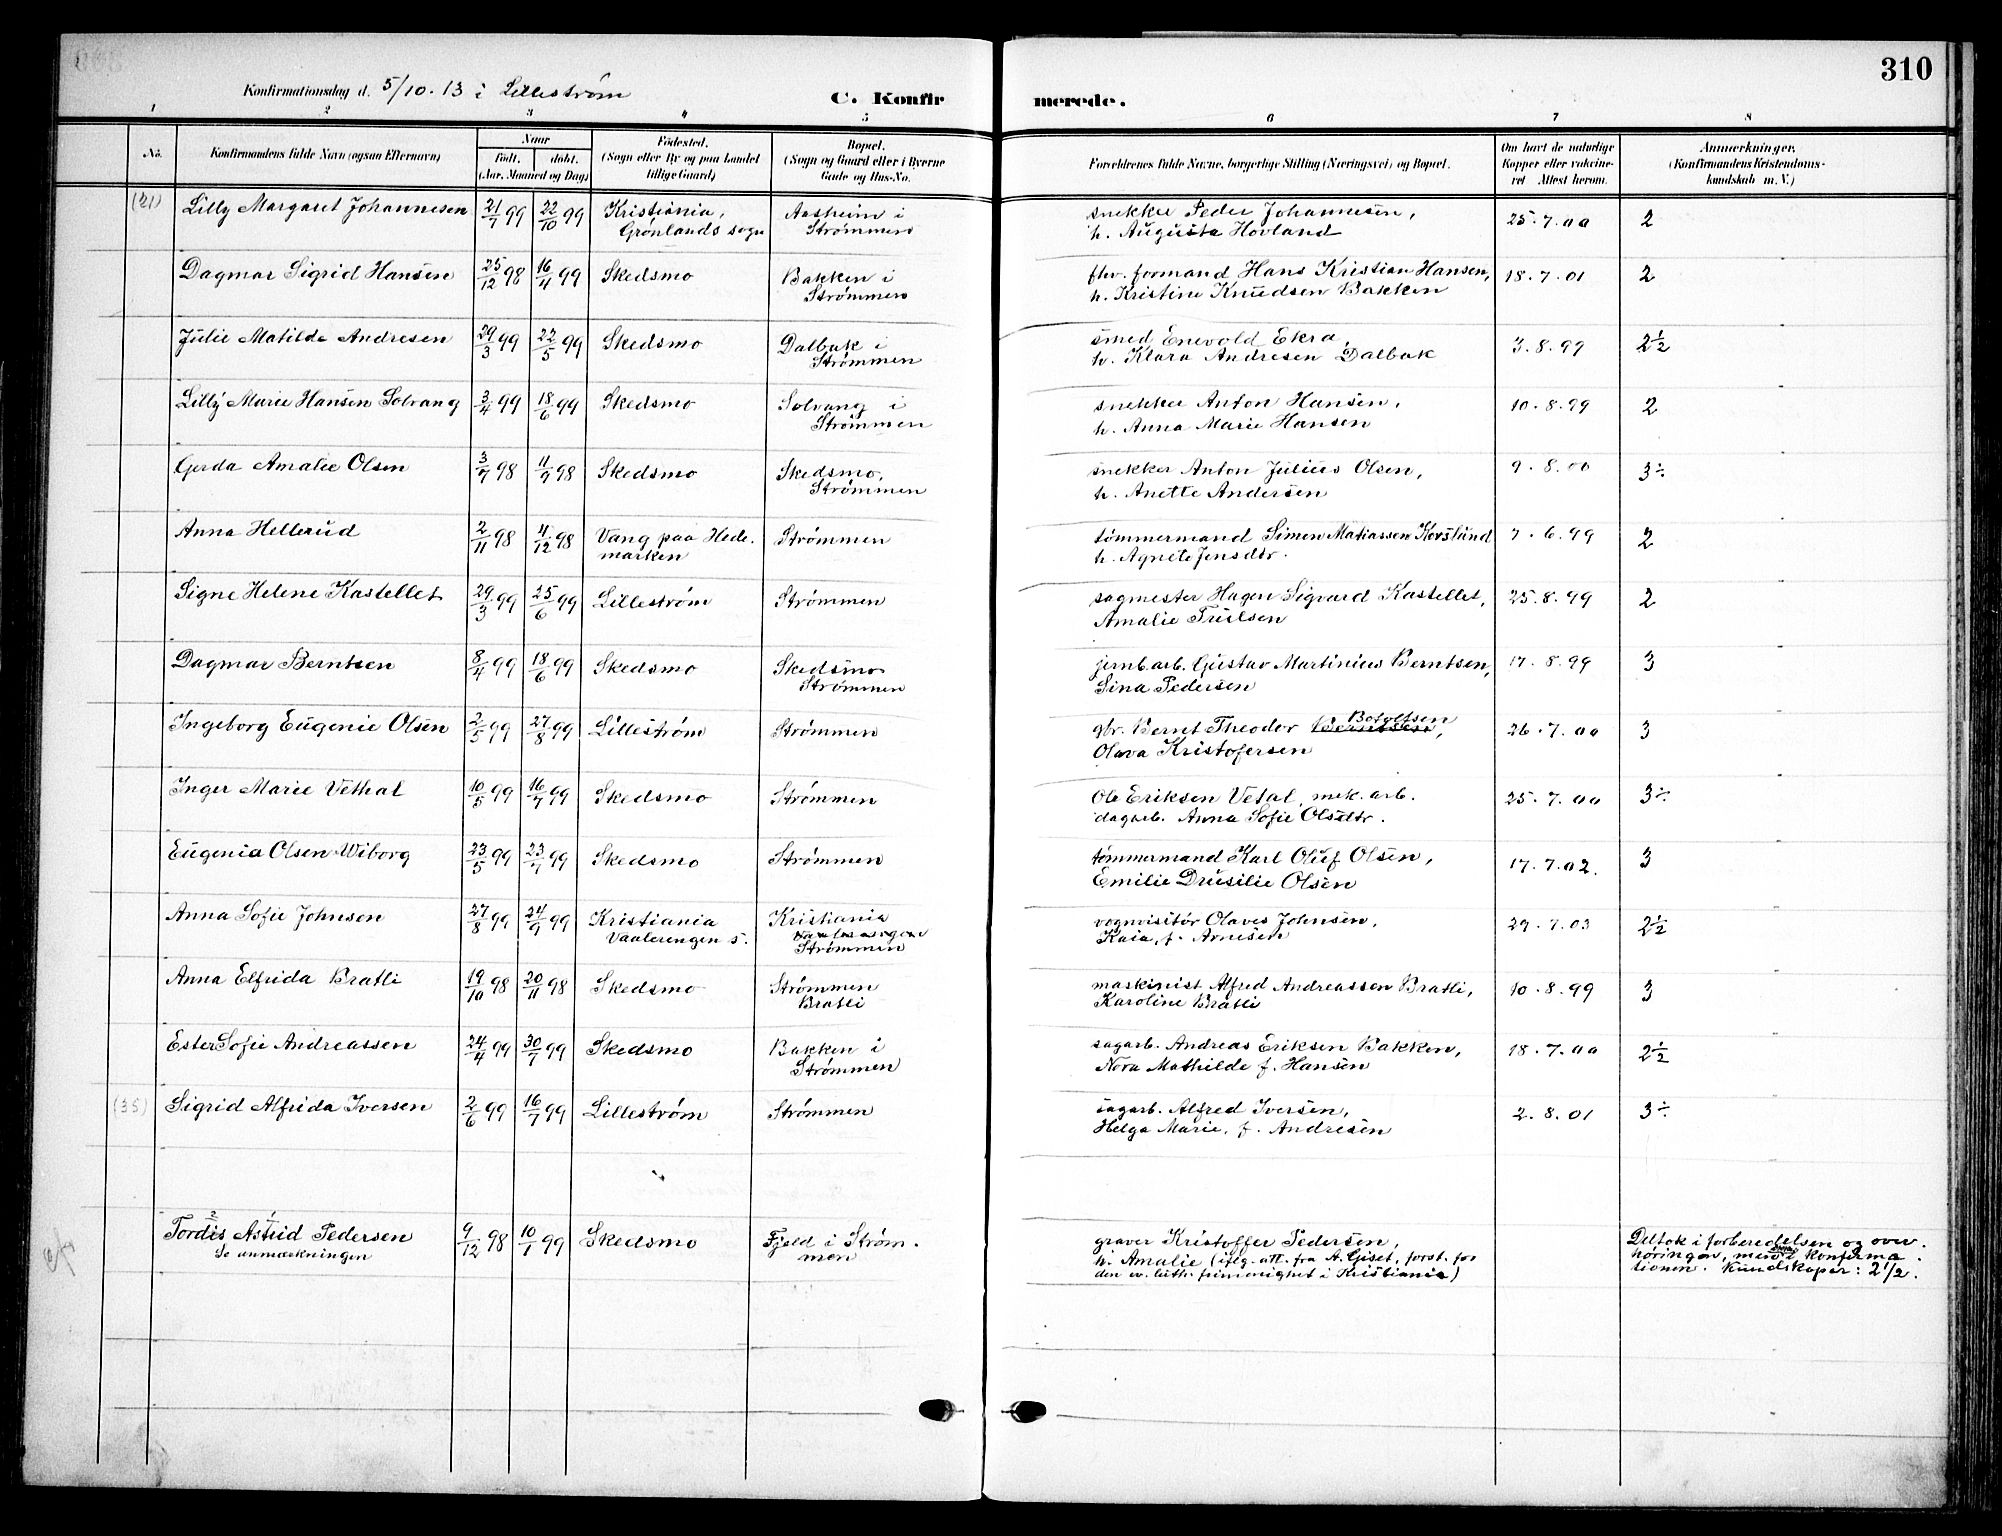 310
Konfirmationsdag d. 5/10. 13 i Lilleström
C. Konfirmerede.
1 2 3 4 5 6 7 8
No. Konfirmandens fulde Navn (ogsaa Efternavn) Naar født. døbt. (Aar, Maaned og Dag) Fødested. (Sogn eller By og paa Landet tillige Gaard) Bopæl. (Sogn og Gaard eller i Byerne Gade og Hus-No. Forældrenes fulde Navne, borgerlige Stilling (Næringsvei) og Bopæl. Om havt de naturlige Kopper eller vakcineret Attest herom. Anmærkninger. (Konfirmandens Kristendomskundskab m. V.)
(21) Lilly Margaret Johannesen 21/7 99 22/10 99 Kristiania, Grönlands sogn Aasheim i Strømmen snekker Peder Johannesen, h. Augusta Hovland 25.7.00 2
Dagmar Sigrid Hansen 25/12 98 16/4 99 Skedsmo Bakken i Strømmen fhv. formand Hans Kristian Hansen, h. Kristine Knudsen Bakken 18.7.01 2
Julie Matilde Andresen 29/3 99 22/5 99 Skedsmo Dalbak i Strømmen smed Enevold Ekra, h. Klara Andresen Dalbak 3.8.99 2½
Lilly Marie Hansen Solvang 3/4 99 18/6 99 Skedsmo Solvang i Strømmen snekker Anton Hansen, h. Anna Marie Hansen 10.8.99 2
Gerda Amalie Olsen 3/7 98 11/9 98 Skedsmo Skedsmo, Strømmen snekker Anton Julius Olsen, h. Anette Andersen 9.8.00 3÷
Anna Hellerud 2/11 98 4/12 98 Vang paa Hedemarken Strømmen tømmermand Simen Matiassen Korslund h. Agnete Jensdtr. 7.6.99 2
Signe Helene Kastellet 29/3 99 25/6 99 Lillestrøm Strømmen sagmester Hagen Sigvard Kastellet, Amalie Trulsen 25.8.99 2
Dagmar Berntsen 8/4 99 18/6 99 Skedsmo Skedsmo Strømmen jernbarb. Gustav Martinius Berntsen, Lina Pedersen 17.8.99 3
Ingeborg Eugenie Olsen 2/5 99 27/8 99 Lillestrøm Strømmen gbr. Bernt Theodor Botolfsen, Olava Kristofersen 26.7.00 3
Inger Marie Vethal 10/5 99 16/7 99 Skedsmo Strømmen Ole Eriksen Vetal, mek. arb. dagarb. Anna Sofie Olsdtr. 25.7.00 3÷
Eugenia Olsen Wiborg 23/5 99 23/7 99 Skedsmo Strømmen tømmermand Karl Oluf Olsen, Emilie Drusilie Olsen 17.7.02. 3
Anna Sofie Johnsen 27/8 99 24/9 99 Kristiania Vaalerengen s. Kristiania Strømmen vognvisitør Olaves Johnsen, Kaia, f. Arnesen 29.7.03 2½
Anna Elfrida Bratli 19/10 98 20/11 98 Skedsmo Strømmen Bratli maskinist Alfred Andreassen Bratli, Karoline Bratli 10.8.99 3
Ester Sofie Andreassen 24/4 99 30/7 99 Skedsmo Bakken i Strømmen sagarb. Andreas Eriksen Bakken, Nora Mathilde f. Hansen 18.7.00 2½
(35) Sigrid Alfrida Iversen 2/6 99 16/7 99 Lillestrøm Strømmen sagarb. Alfred Iversen, Helga Marie, f. Andresen 2.8.01 3÷
Tordis Astrid Pedersen Se anmærkningen 9/12 98 10/1 99 Skedsmo Fjeld i Strømmen graver Kristoffer Pedersen, h. Amalie (iflg. att. fra A. Gjset, forst. for den ev. luth. frimenighet i Kristiania) Deltok i forberedelsen og overhøringen, men i konfirmationen. Kundskaper: 2½.